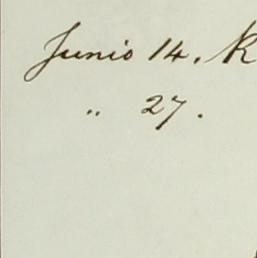 Junio 14. R
" 27.